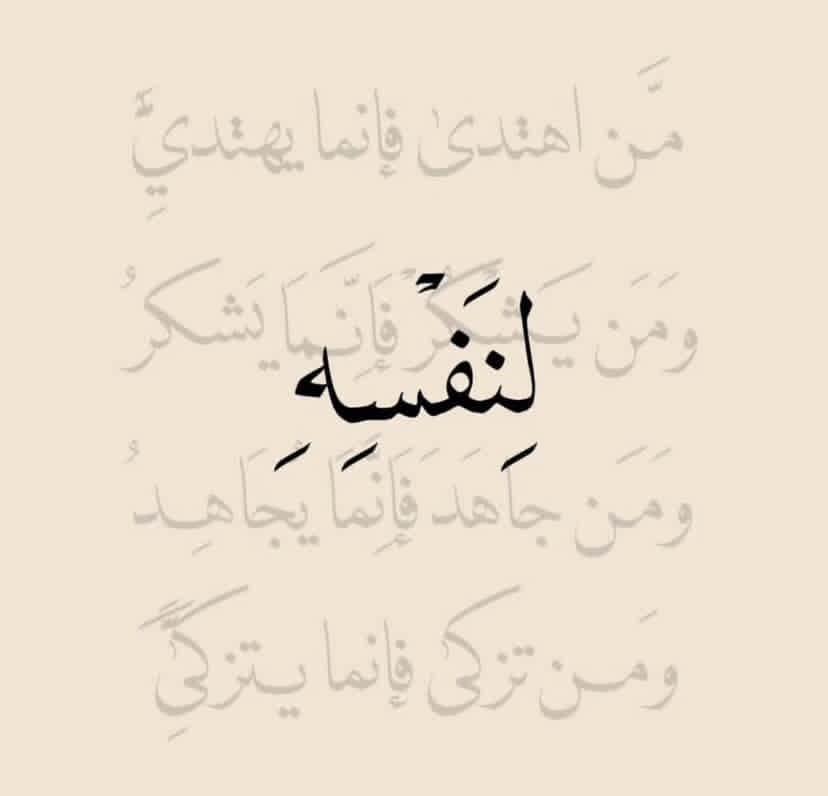 مَّن اهتدىٰ فإنما يهتديِّ
وَمَن يَشكُرْ فَإِنَّمَا يَشكرُ
لِنَفْسِهِ
وَمَن جاهَدَ فَإِنَّمَا يُجَاهِدُ
وَمَن تزكىٰ فإنما يتزكىِّ